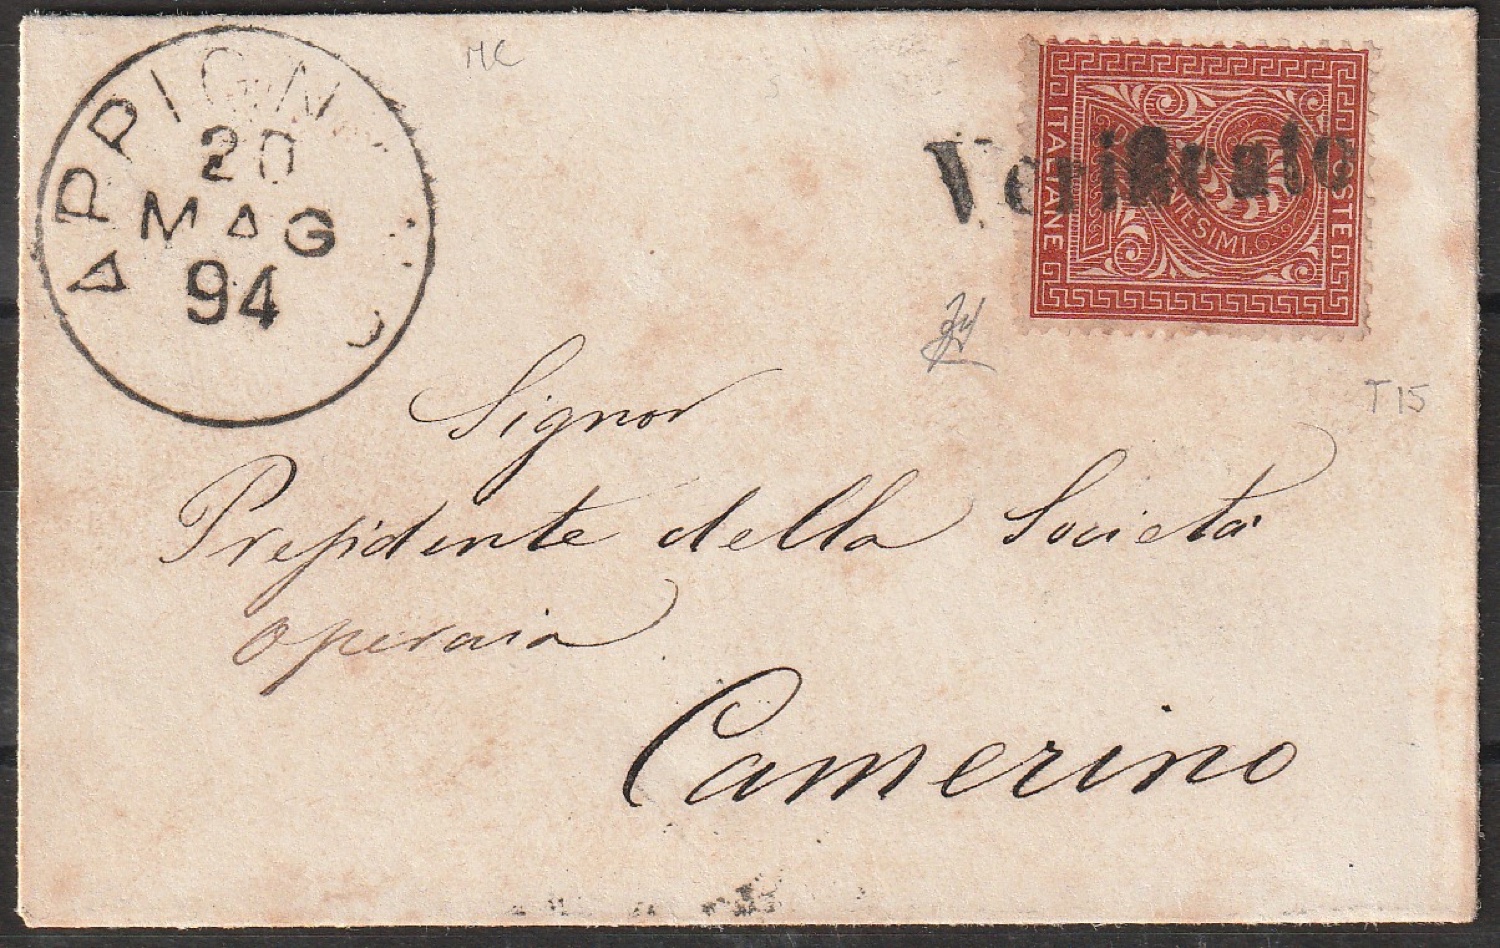 MC
APPIGN
20
MAG
94
Verificato
POSTE
ITALIANE
CENTESIMI.
T15
Signor
Presidente della Società
operaia
Camerino